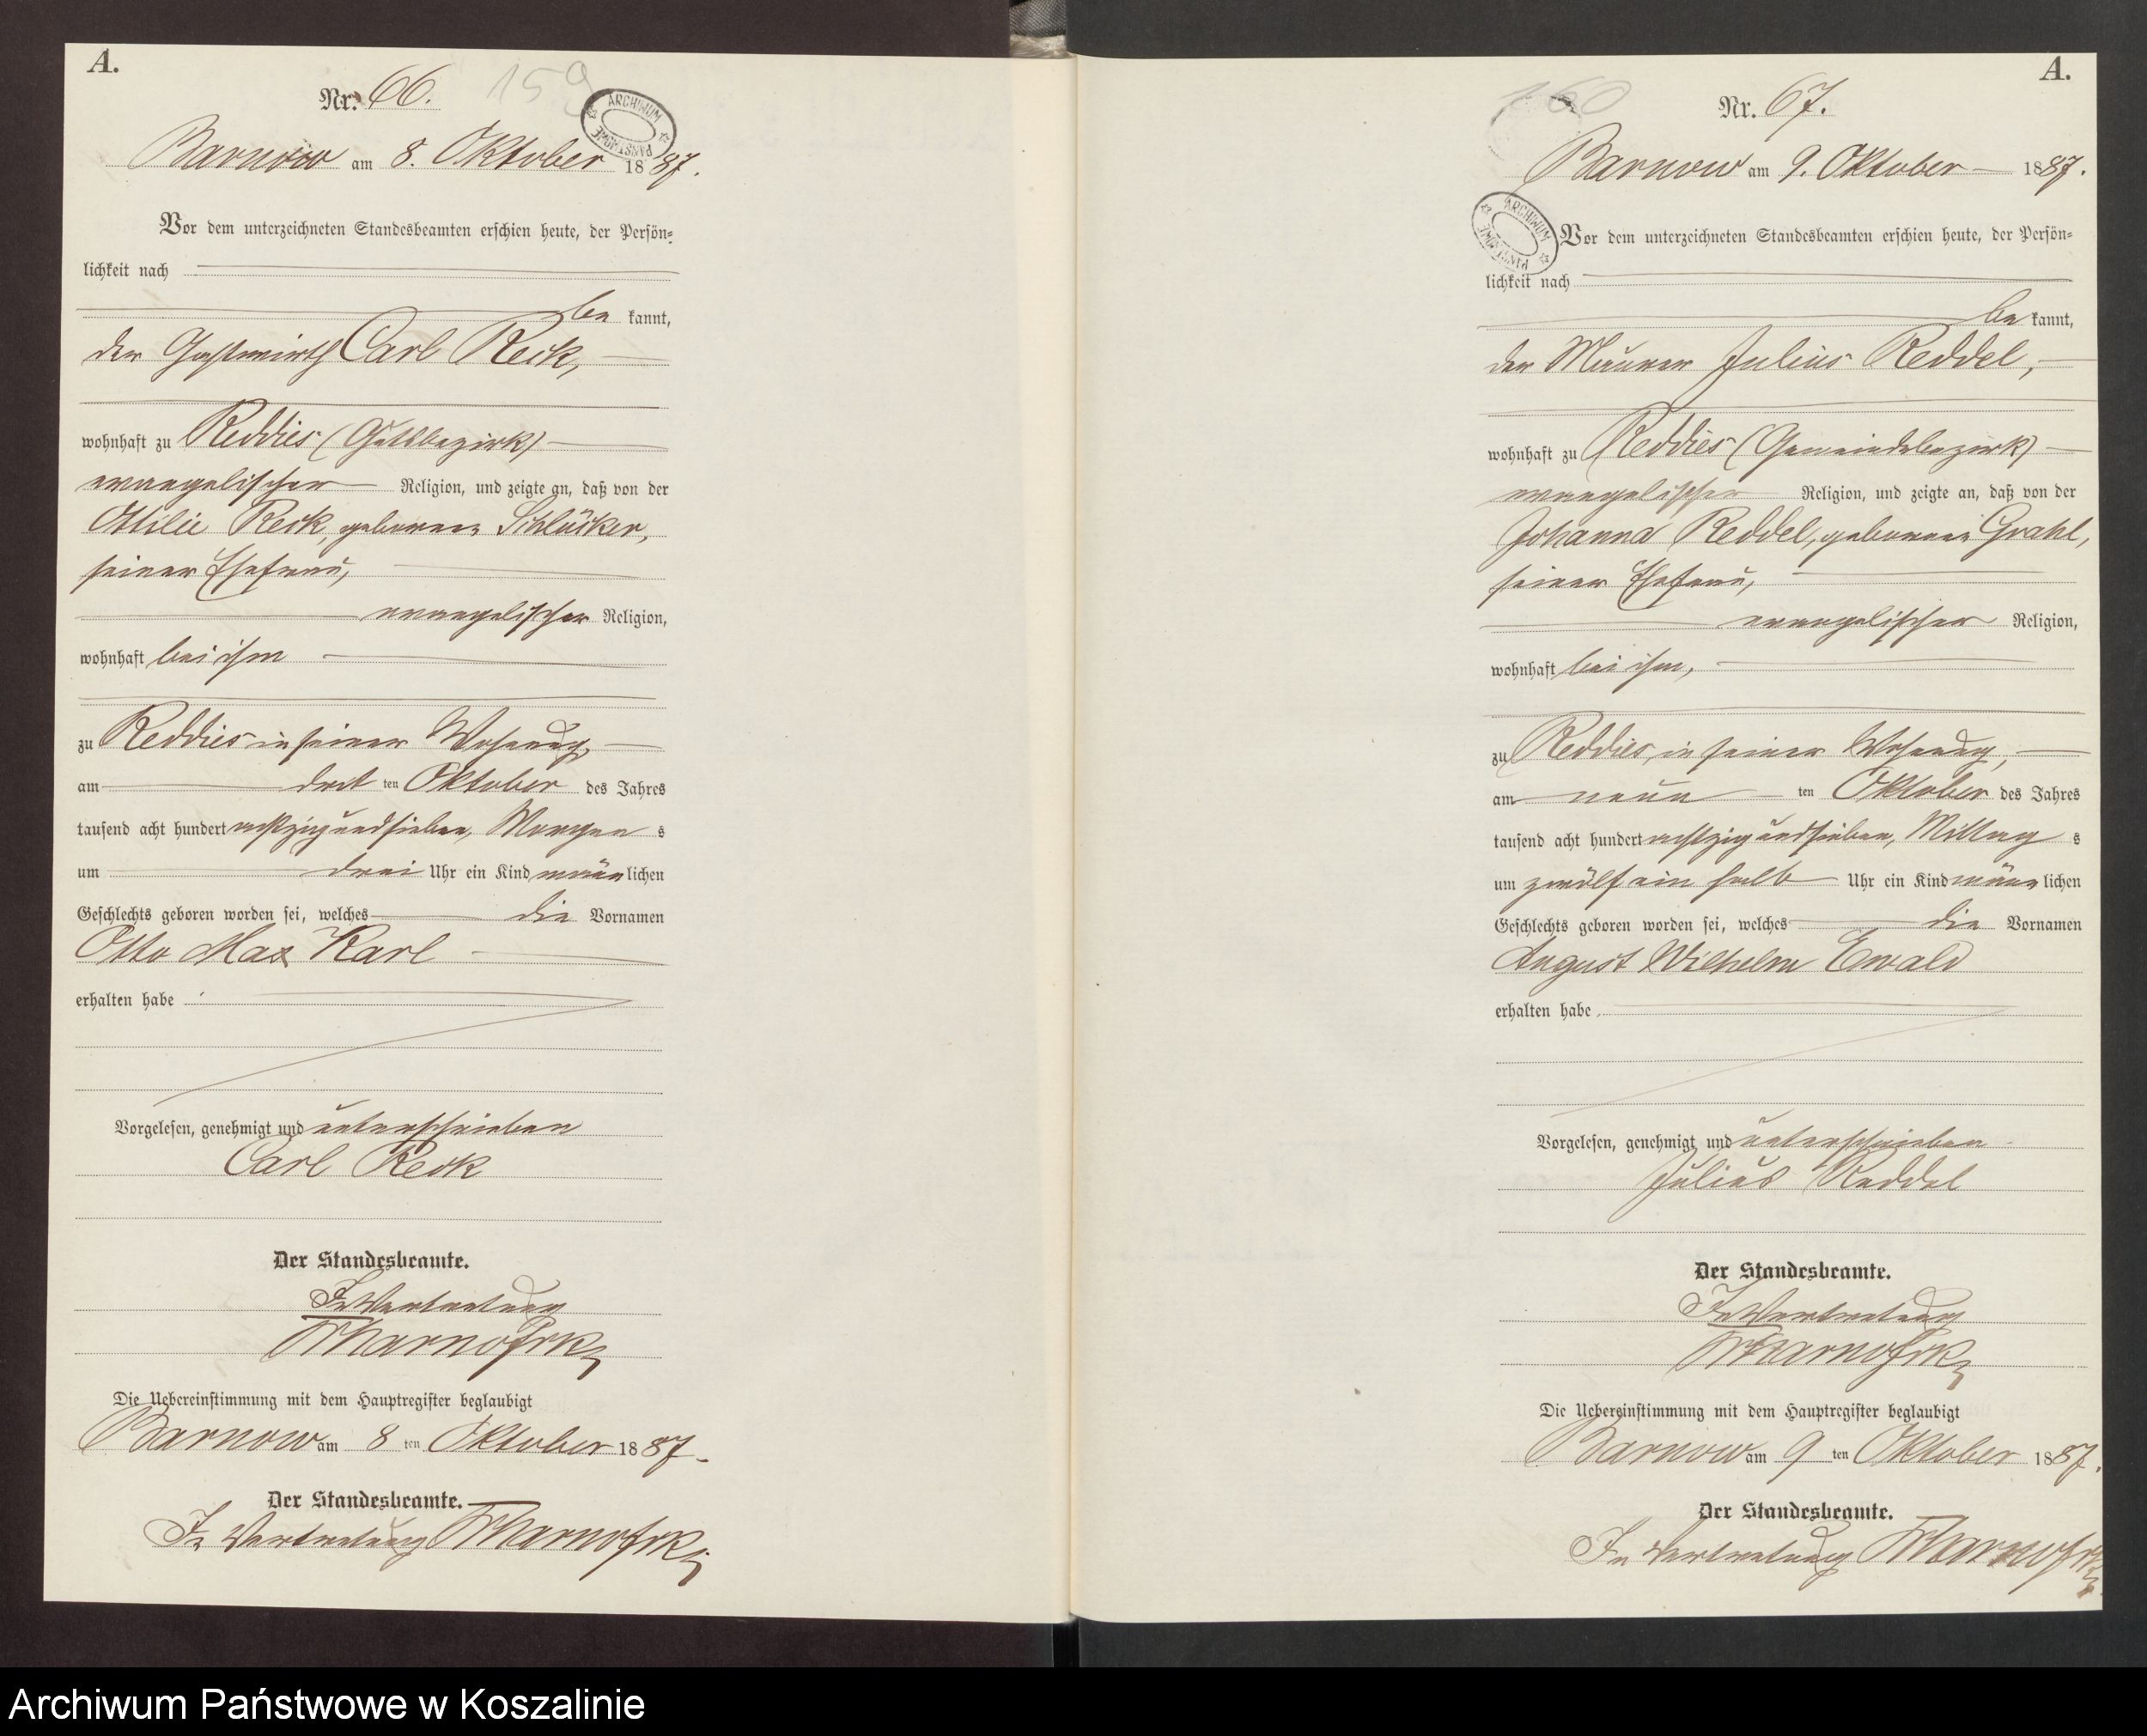 A.
Nr. 66.
159
ARCHIWUM PAŃSTWOWE
Barnow am 8. Oktober 1887.
Vor dem unterzeichneten Standesbeamten erschien heute, der Persön=
lichkeit nach
be kannt,
der Gastwirth Carl Reck,
wohnhaft zu Reddies (Gutsbezirk)
evangelischer Religion, und zeigte an, daß von der
Ottilie Reck, geborenen Schlücker,
seiner Ehefrau,
evangelischer Religion,
wohnhaft bei ihm
zu Reddies in seiner Wohnung,
am drit ten Oktober des Jahres
tausend acht hundert achtzig und sieben, Morgen s
um drei Uhr ein Kind männ lichen
Geschlechts geboren worden sei, welches die Vornamen
Otto Max Karl
erhalten habe
Vorgelesen, genehmigt und unterschrieben
Carl Reck
Der Standesbeamte.
In Vertretung
Die Uebereinstimmung mit dem Hauptregister beglaubigt
Barnow am 8 ten Oktober 1887.
Der Standesbeamte.
In Vertretung
A.
160
Nr. 67.
Barnow am 9. Oktober 1887.
ARCHIWUM PAŃSTWOWE
Vor dem unterzeichneten Standesbeamten erschien heute, der Persön=
lichkeit nach
be kannt,
der Maurer Julius Reddel,
wohnhaft zu Reddies (Gemeindebezirk)
evangelischer Religion, und zeigte an, daß von der
Johanna Reddel, geborenen Grahl,
seiner Ehefrau,
evangelischer Religion,
wohnhaft bei ihm,
zu Reddies, in seiner Wohnung,
am neun ten Oktober des Jahres
tausend acht hundert achtzig und sieben, Mittag s
um zwölf ein halb Uhr ein Kind männ lichen
Geschlechts geboren worden sei, welches die Vornamen
August Wilhelm Ewald
erhalten habe
Vorgelesen, genehmigt und unterschrieben
Julius Reddel
Der Standesbeamte.
In Vertretung
Die Uebereinstimmung mit dem Hauptregister beglaubigt
Barnow am 9 ten Oktober 1887.
Der Standesbeamte.
In Vertretung
Archiwum Państwowe w Koszalinie